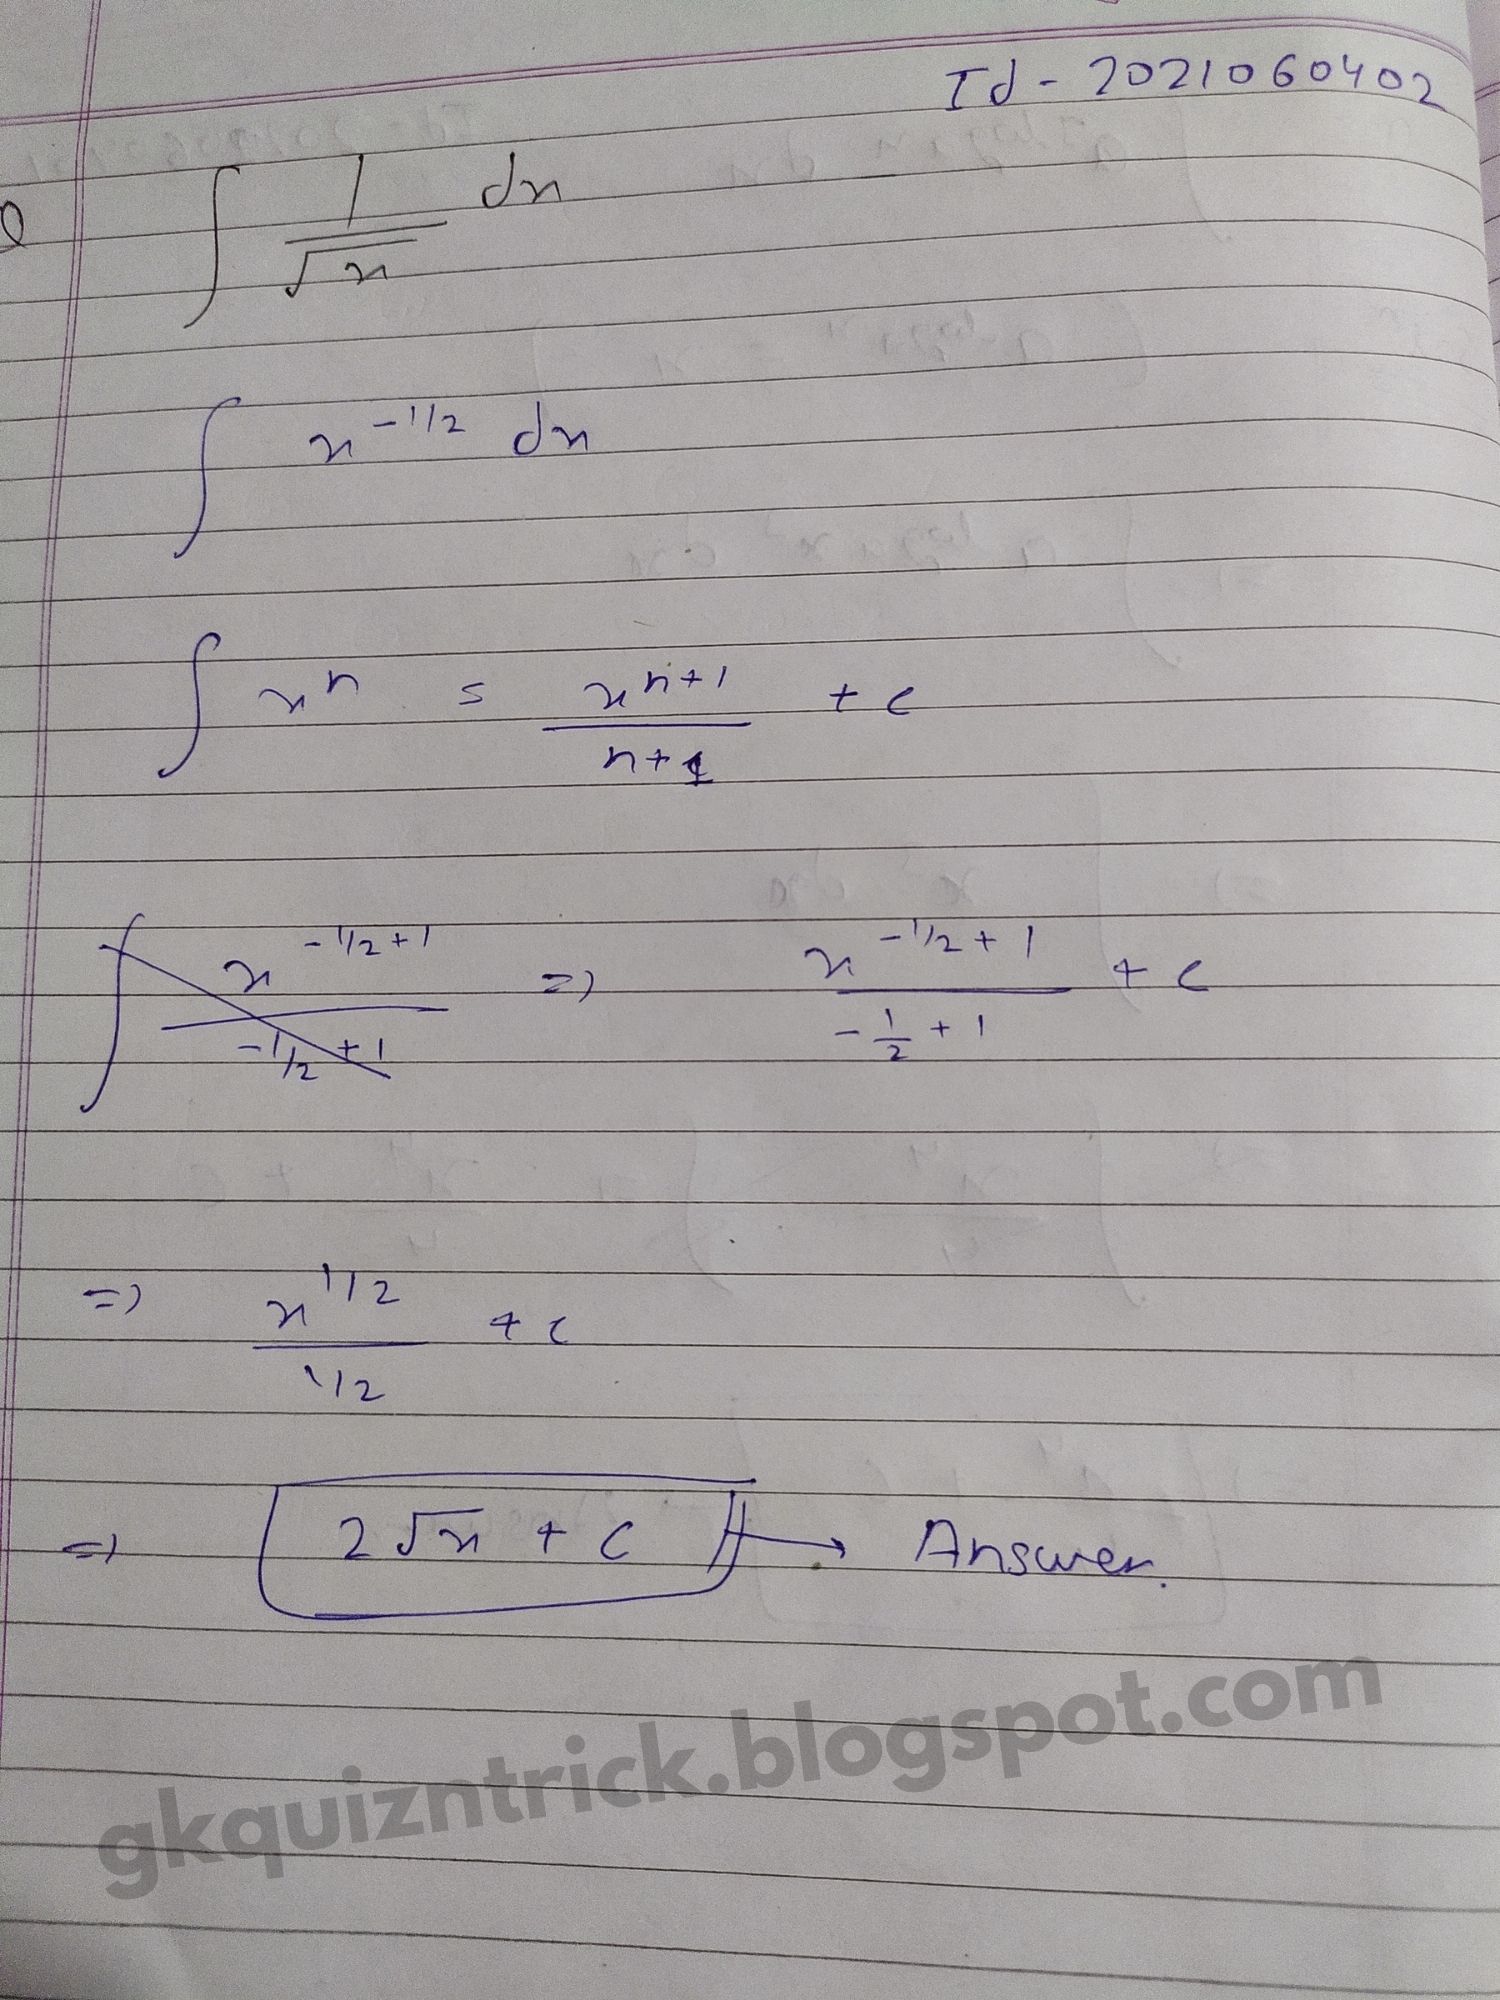 Id - 2021060402
Q ∫ 1/√x dx
∫ x^-1/2 dx
∫ x^n = x^n+1 / n+1 + c
∫ x^-1/2+1 / -1/2+1 => x^-1/2+1 / -1/2+1 + c
=> x^1/2 / 1/2 + c
=> 2√x + c → Answer.
gkquizntrick.blogspot.com